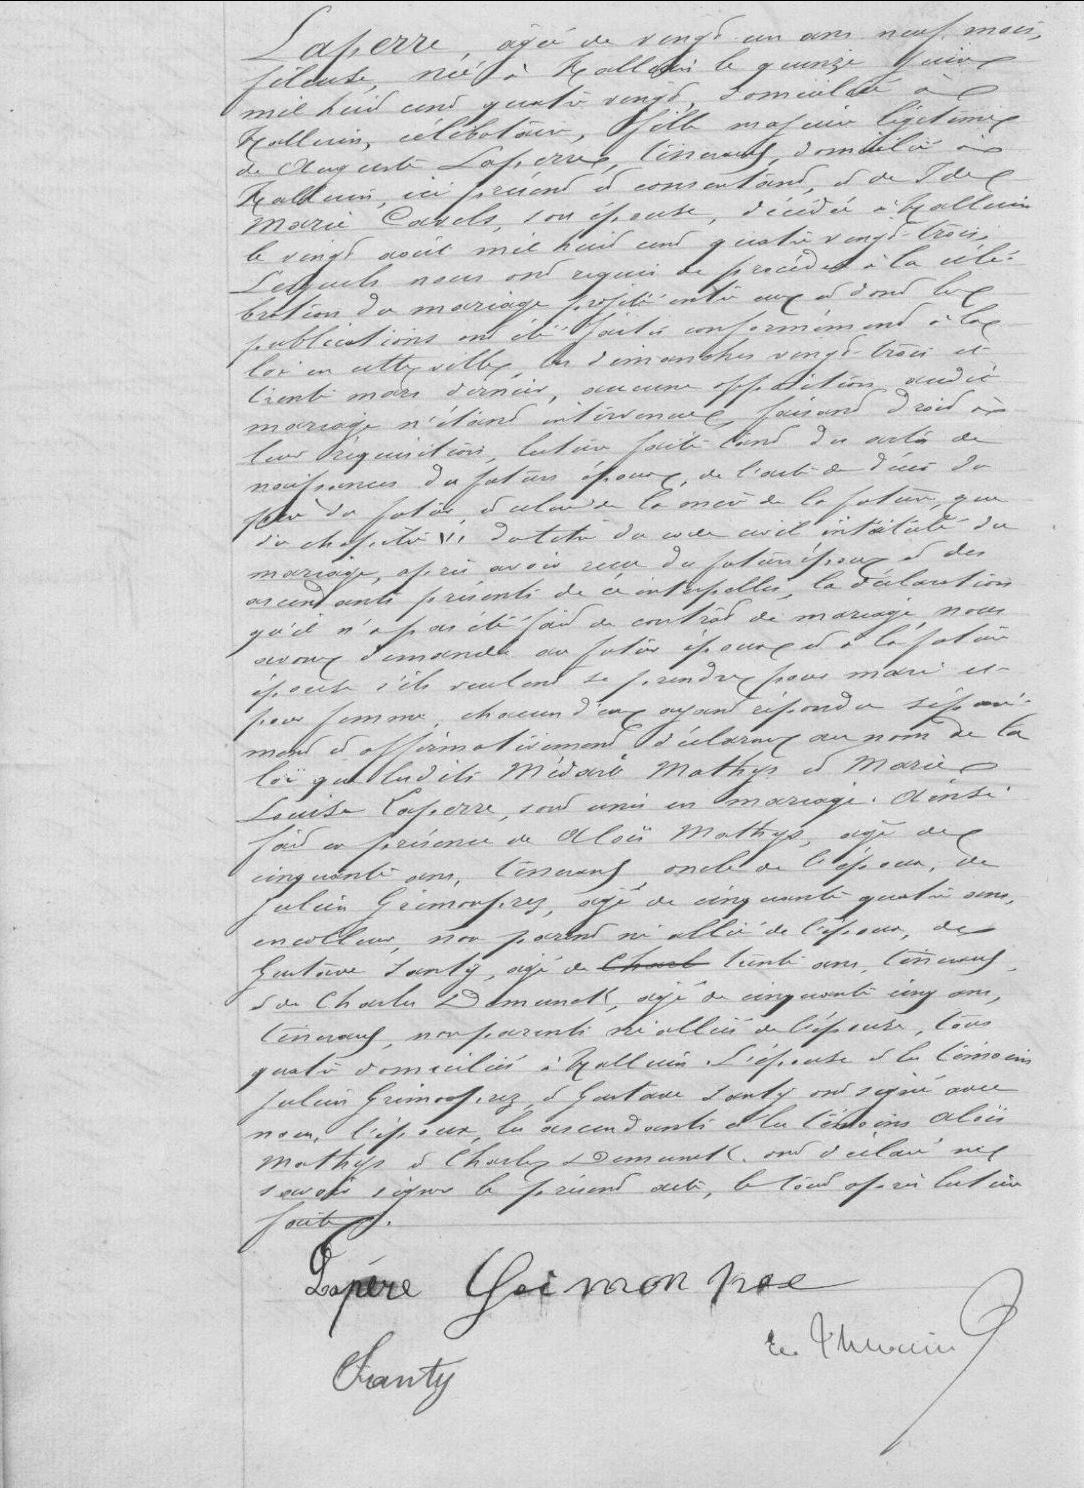 Laperre, agée de vingt un ans neuf mois,
fileuse, née à Halluin le quinze juin
mil huit cent quatre vingt, domiciliée à
Halluin, célibataire, fille majeure légitime
de Auguste Laperre, tisserand, domicilié à
Halluin, ici présent et consentant, et de Ide
Marie Cavels, son épouse, décédée à Halluin
le vingt août mil huit cent quatre vingt-trois;
Lesquels nous ont requis de procéder à la célé-
bration du mariage projeté entre eux et dont les
publications ont été faites conformément à la
loi en cette ville, les dimanches vingt-trois et
trente mars dernier, aucune opposition audit
mariage n'étant intervenue, faisant droit à
leur réquisition, lecture faite tant des actes de
naissances des futurs époux, de l'acte de décès du
père du futur, et celui de la mère de la future, que
du chapitre VI du titre du code civil intitulé du
mariage, après avoir reçu des futurs époux et des
ascendants présents de ce interpellés, la déclaration
qu'il n'a pas été fait de contrat de mariage, nous
avons demandé au futur époux et à la future
épouse s'ils veulent se prendre pour mari et
pour femme, chacun d'eux ayant répondu séparé-
ment et affirmativement, déclarons au nom de la
loi que lesdits Médard Mathys et Marie
Louise Laperre, sont unis en mariage. Ainsi
fait en présence de Aloïs Mathys, agé de
cinquante ans, tisserand, oncle de l'époux, de
Julien Grimonprez, agé de cinquante quatre ans,
encolleur, non parent ni allié de l'époux, de
Gustave Santy, agé de Charl trente ans, tisserand,
et de Charles Demunck, agé de cinquante cinq ans,
tisserand, non parents ni alliés de l'épouse, tous
quatre domiciliés à Halluin. L'épouse et les témoins
Julien Grimonprez et Gustave Santy ont signé avec
nous, l'époux, les ascendants et les témoins Aloïs
Mathys et Charles Demunck ont déclaré ne
savoir signer le présent acte, le tout après lecture
faite.
Lapére Grimonpree
Santy